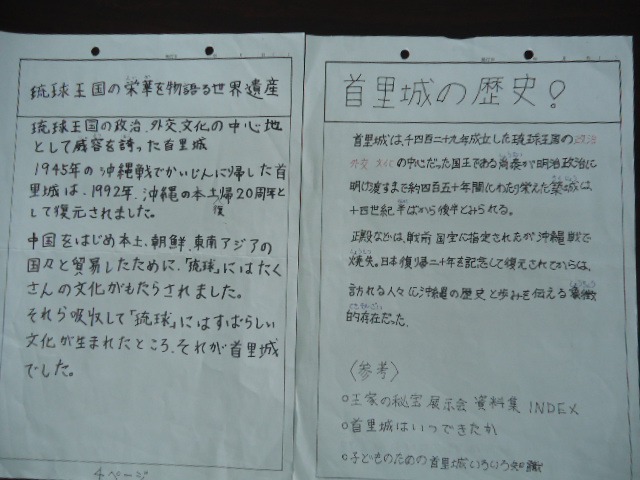 琉球王国の栄華を物語る世界遺産
琉球王国の政治、外交、文化の中心地
として威容を誇った首里城
1945年の沖縄戦でかいじんに帰した首
里城は、1992年、沖縄の本土復帰20周年と
して復元されました。
中国をはじめ本土、朝鮮、東南アジアの
国々と貿易したために、「琉球」にはたく
さんの文化がもたらされました。
それら吸収して「琉球」にはすばらしい
文化が生まれたところ、それが首里城
でした。
4ページ
首里城の歴史!
首里城は、千四百二十九年成立した琉球王国の政治
外交 文化の中心だった国王である尚泰が明治政治に
明け渡すまで約四百五十年間にわたり栄えた築城は、
十四世紀半ばから後半とみられる。
正殿などは、戦前国宝に指定されたが沖縄戦で
焼失。日本復帰二十年を記念して復元されてからは、
訪れる人々に沖縄の歴史と歩みを伝える象徴
的存在だった.
〈参考〉
○王家の秘宝展示会 資料集 INDEX
○首里城はいつできたか
○子どものための首里城いろいろ知識